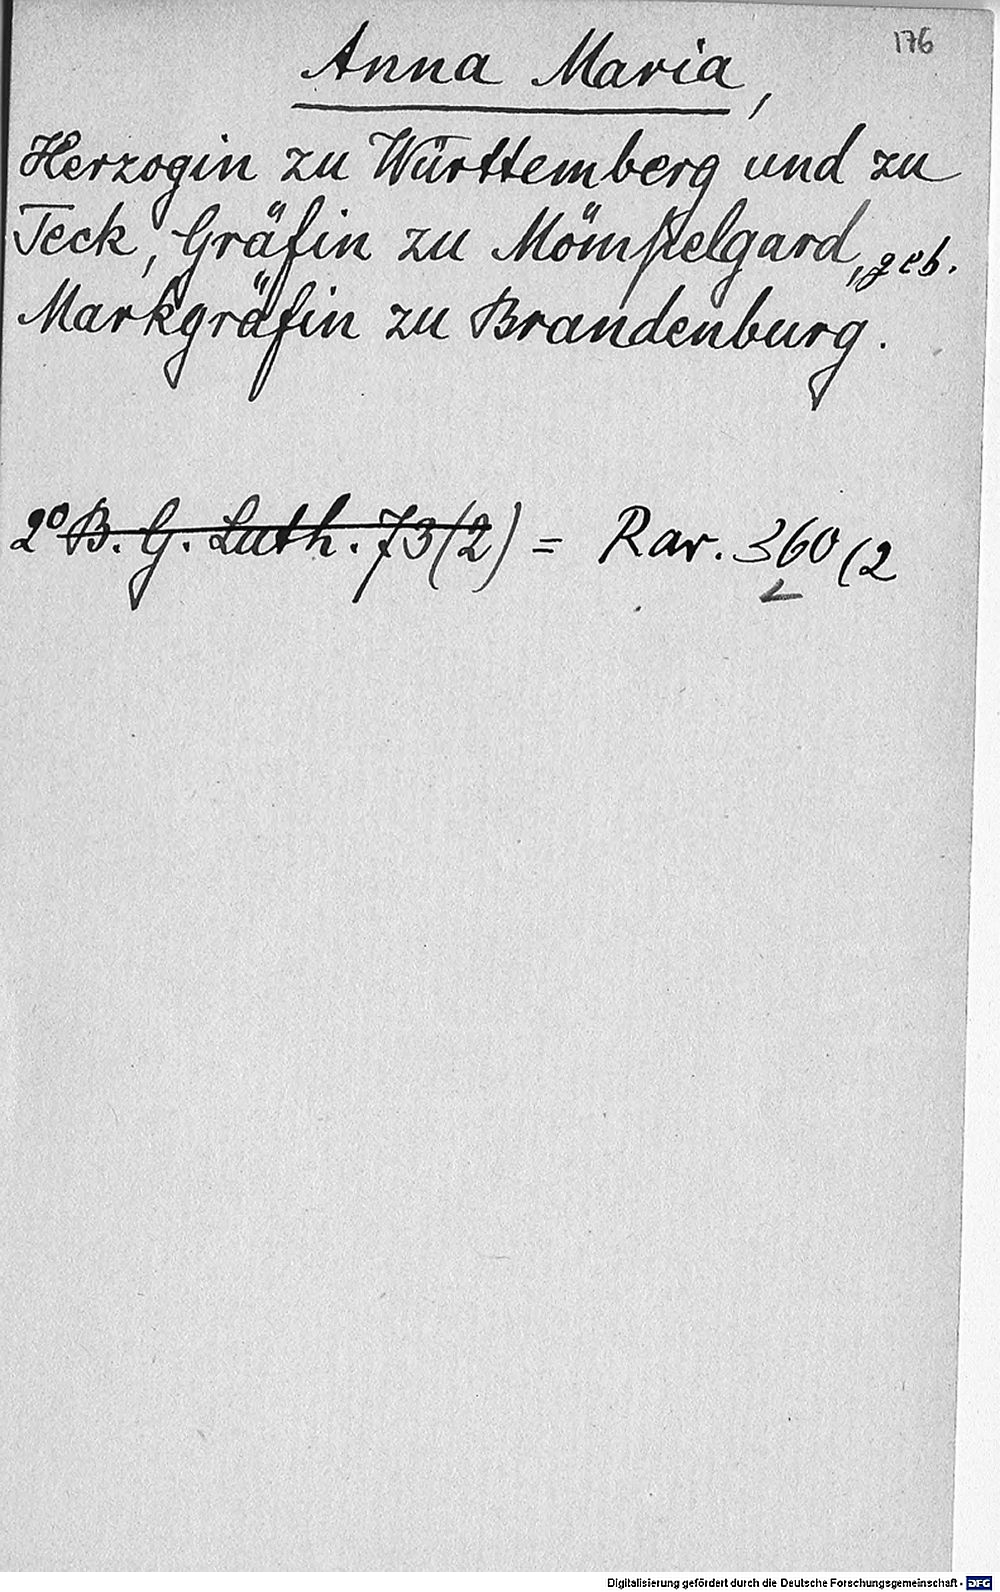 176
Anna Maria,
Herzogin zu Württemberg und zu
Teck, Gräfin zu Mömpelgard, geb.
Markgräfin zu Brandenburg.
2° B. G. Luth. 73(2) = Rar. 360(2
Digitalisierung gefördert durch die Deutsche Forschungsgemeinschaft - DFG